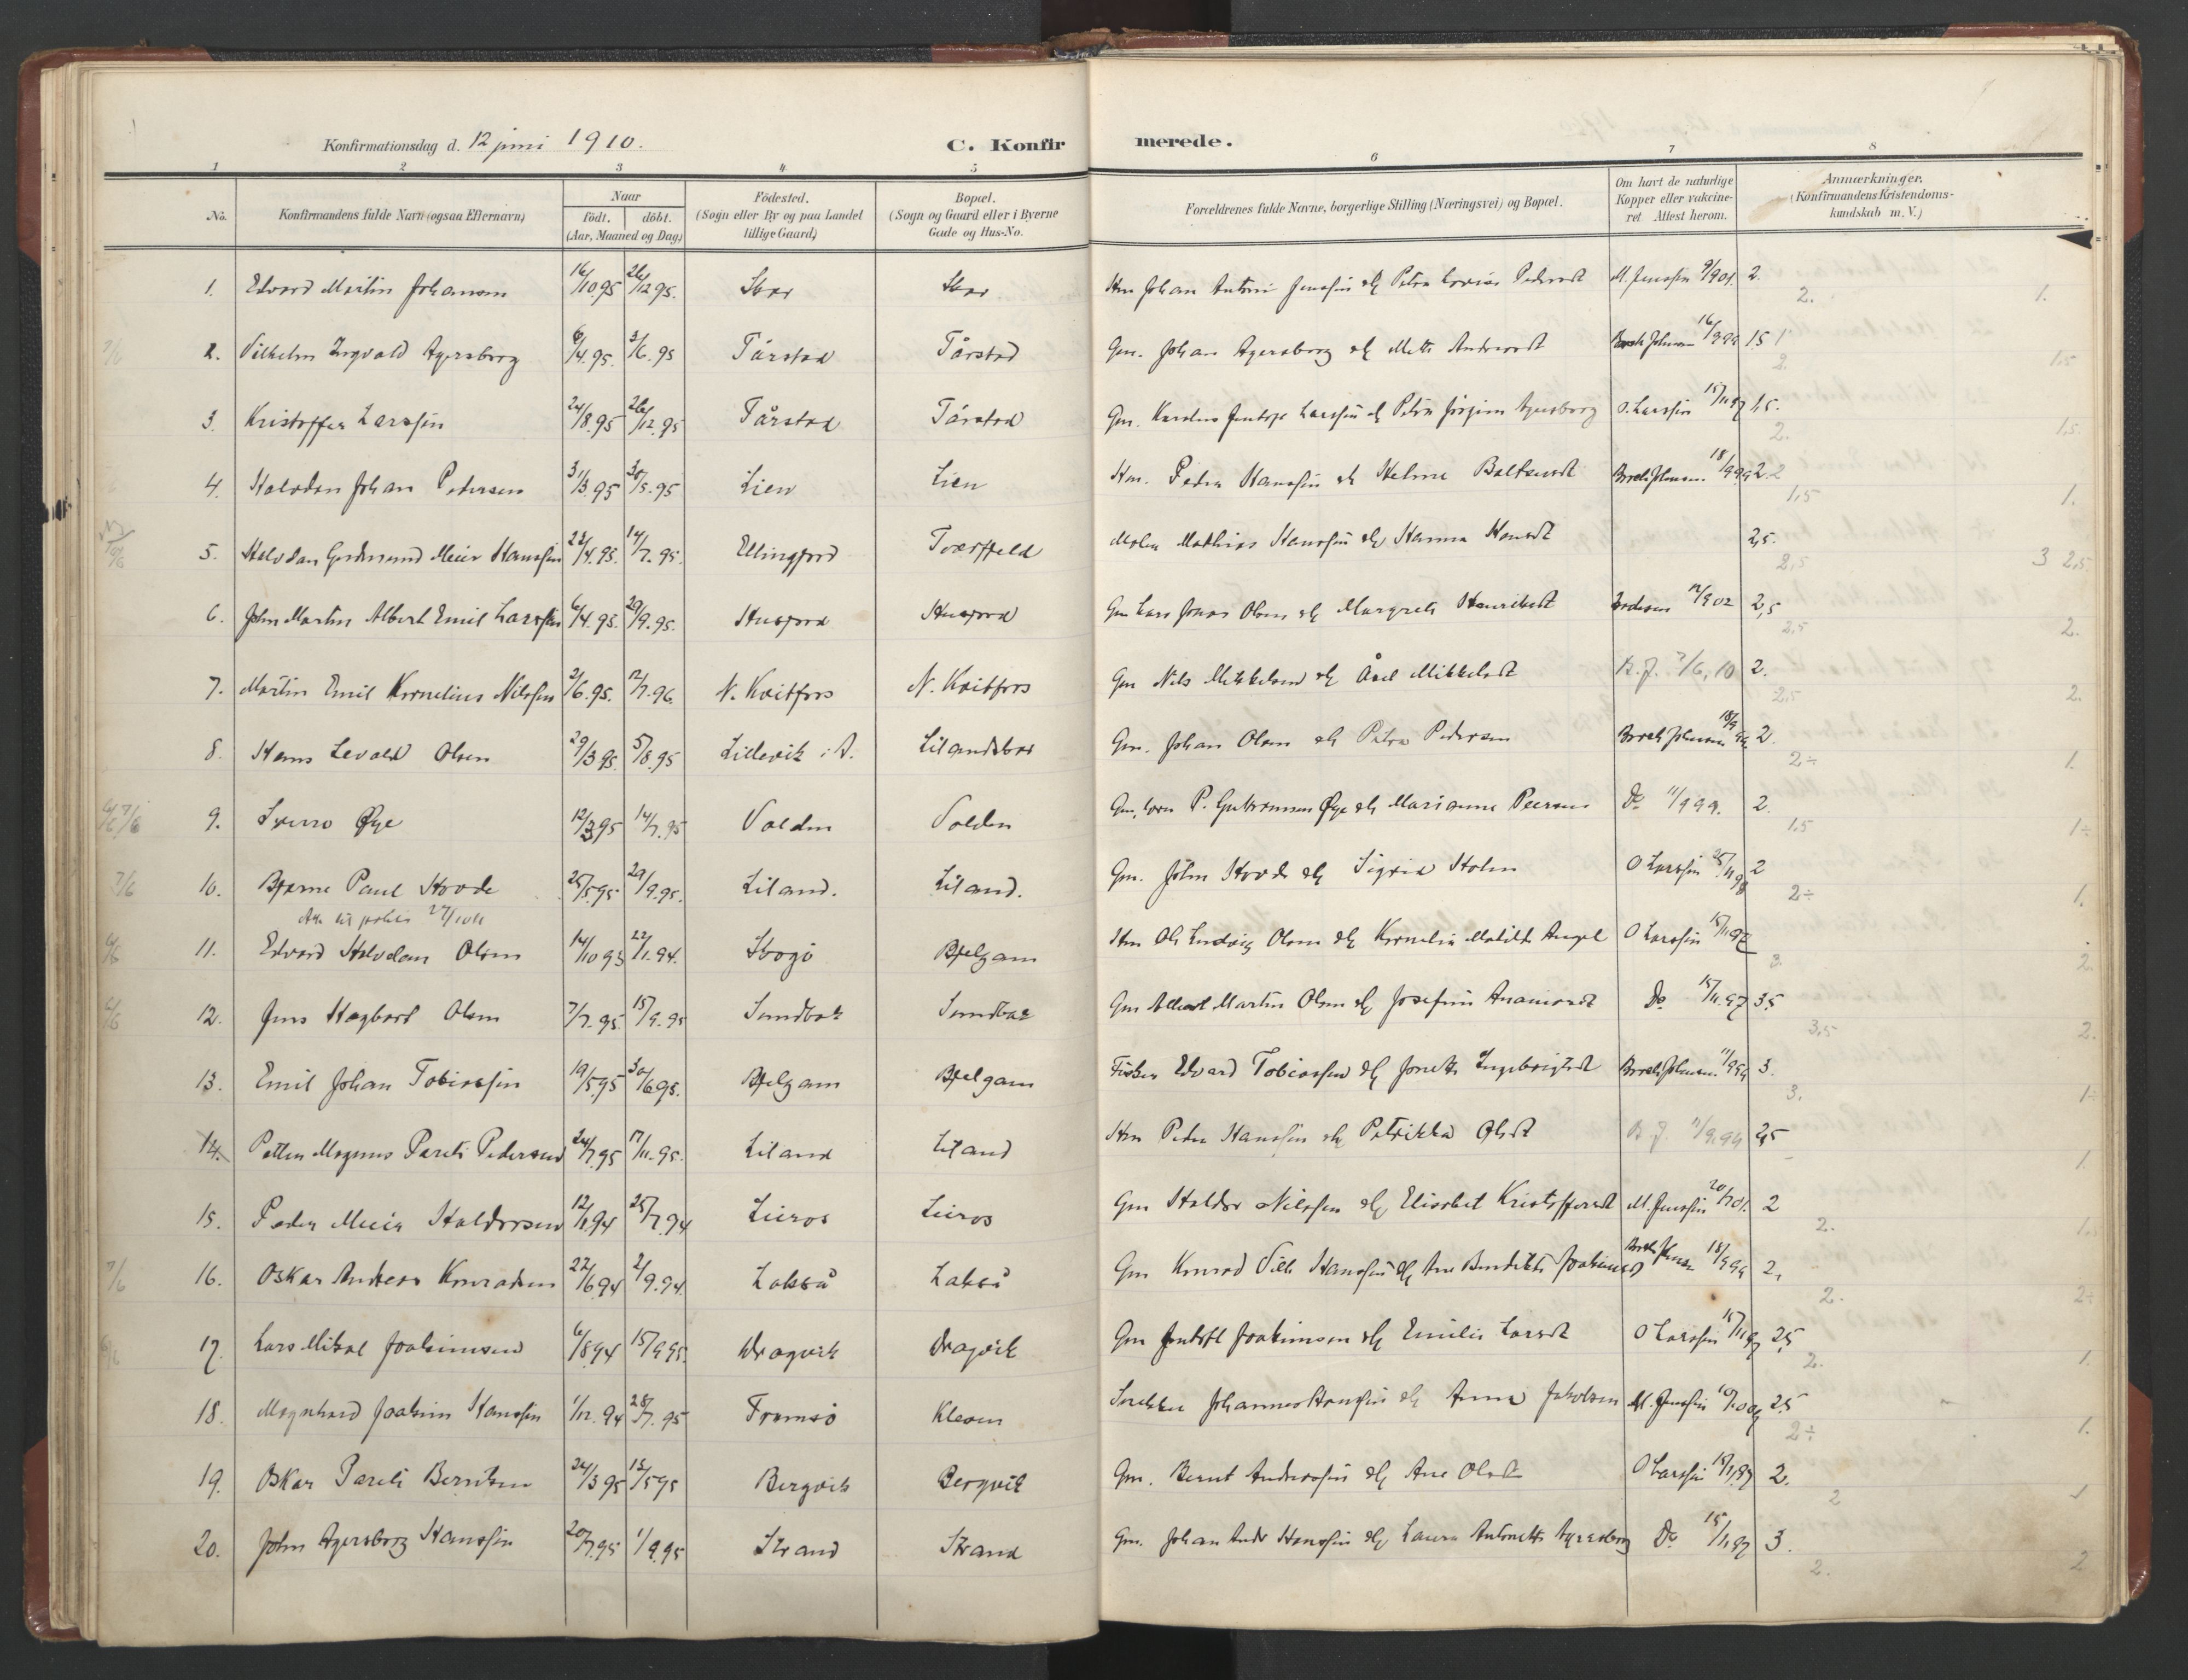 Konfirmationsdag d. 12 juni 1910.
C. Konfirmerede.
1 2 3 4 5 6 7 8
No. Konfirmandens fulde Navn (ogsaa Efternavn) Naar født. døbt. (Aar, Maaned og Dag) Födested. (Sogn eller By og paa Landet tillige Gaard) Bopæl. (Sogn og Gaard eller i Byerne Gade og Hus-No. Forældrenes fulde Navne, borgerlige Stilling (Næringsvei) og Bopæl. Om havt de naturlige Kopper eller vakcineret Attest herom. Anmærkninger. (Konfirmandens Kristendomskundskab m. V.)
1. Edvard Martin Johansen 16/10 95 26/12 95. Skar Skar Hm Johan Antoni Jenssen og Petra Lovise Pedersdt M. Jenssen 9/9 01. 2. 2. 1.
7/6 2. Vilhelm Ingvald Agersborg 6/4. 95. 3/6. 95 Tårstad Tårstad Gm. Johan Agersborg og Mette Andersdt 16/9 99 1,5 2. 1,5
3. Kristoffer Larssen 24/8 95 26/12. 95 Tårstad Tårstad Gm. Larssen og Petra Agersborg O. Larssen 15/11 97 1,5. 2. 1,5.
4. Halvdan Johan Pedersen 31/3. 95 30/5. 95 Lien Lien Hm. Peder Hanssen og Helene Baltsersdt 18/9 99 2. 1,5 1.
5. Halvdan Meier Hanssen 23/4. 95. 14/7. 95. Ellingfjord Tverfjeld Maler Mathias Hanssen og Hanna Hansdt 2,5. 2,5 3 2,5.
6. John Martin Albert Emil Larssen 6/4. 95. 29/9. 95. Husfjord Husfjord Gm Lars Jonas Olsen og Margrete Henriksdt 12/9 02 2,5 2,5 2.
7. Martin Emil Kornelius Nilssen 2/6. 95. 12/7. 96. N. Kvitfors N. Kvitfors Gm Nils Mikkelsen og Åsel Mikkelsdt B. J. 7/6, 10 2. 2,5 2.
8. Hans Levald Olsen 29/3 95. 5/8. 95 Lillevik i A. Lilandskar Gm. Johan Olsen og Petra Pedersen 18/9 99 2. 2÷ 1.
7/6 9. Sverre Øye 12/3 95 14/7. 95 Volden Volden Gm, P. Guttormsen Øye og Marianne Peersen Do 11/9 99. 2. 1,5 1÷
7/6 10. Bjarne Paul Hovde 25/5 95 29/9. 95. Liland. Liland. Gm. John Hovde og Sigrid Holm O Larssen 25/11 98 2 2÷ 1.
6/6 11. Edvard Halvdan Olsen 14/10 93 22/1. 94. Skogø Bjelgam Hm Ole Ludvig Olsen og Kornelia Matilde Angel O Larssen 15/11 97 3. 2.
6/6 12. Jens Hagbart Olsen 7/7. 95. 15/9. 95 Sandbak Sandbak Gm Albert Martin Olsen og Josefine Do 15/11. 97 3,5 3,5 2.
13. Emil Johan Tobiassen 19/5 95 30/6 95. Bjelgam Bjelgam Fisker Edvard Tobiassen og Jonette Ingebrigtsdt 11/9 99 3. 3. 1÷
14. Petter Magnus Pareli Pedersen 24/7 95 17/11. 95. Liland Liland Hm Peder Hanssen og Petrikka Olsdt B. J. 11/9. 99 2,5 1.
15. Peder Meier Haldorsen 12/1 94 25/7. 94 Leiros Leiros Gm Haldor Nilssen og Elisabet Kristoffersdt M. Jenssen 20/7 01. 2 2. 1,5
7/6 16. Oskar Andreas Konradsen 22/6 94 2/9. 94. Lakså Lakså Gm Konrad Vilh Hanssen og Ane Bendikte Joakimsd 18/9 99 2, 2. 2÷
6/6 17. Lars Mikal Joakimsen 6/8 94 15/9 95. Dragvik Dragvik Gm Joakimsen og Emilie Larsdt O Larssen 15/11 97 2,5 2. 1.
18. Magnhard Joakim Hanssen 1/12. 94 28/7. 95 Tromsö Kleven Snekker Johannes Hanssen og Anna Jakobsen M. Jenssen 2,5 2÷ 1.
19. Oskar Pareli Berntsen 24/3 95 12/5 95 Bergvik Bergvik Gm. Bernt Anderssen og Ane Olsdt O Larssen 15/11 97 2. 2 1
20. John Agersborg Hanssen 20/7. 95 1/9. 95 Strand Strand Gm. Johan Andr Hanssen og Laura Antonette Agersborg Do 15/11 97 3. 2. 2